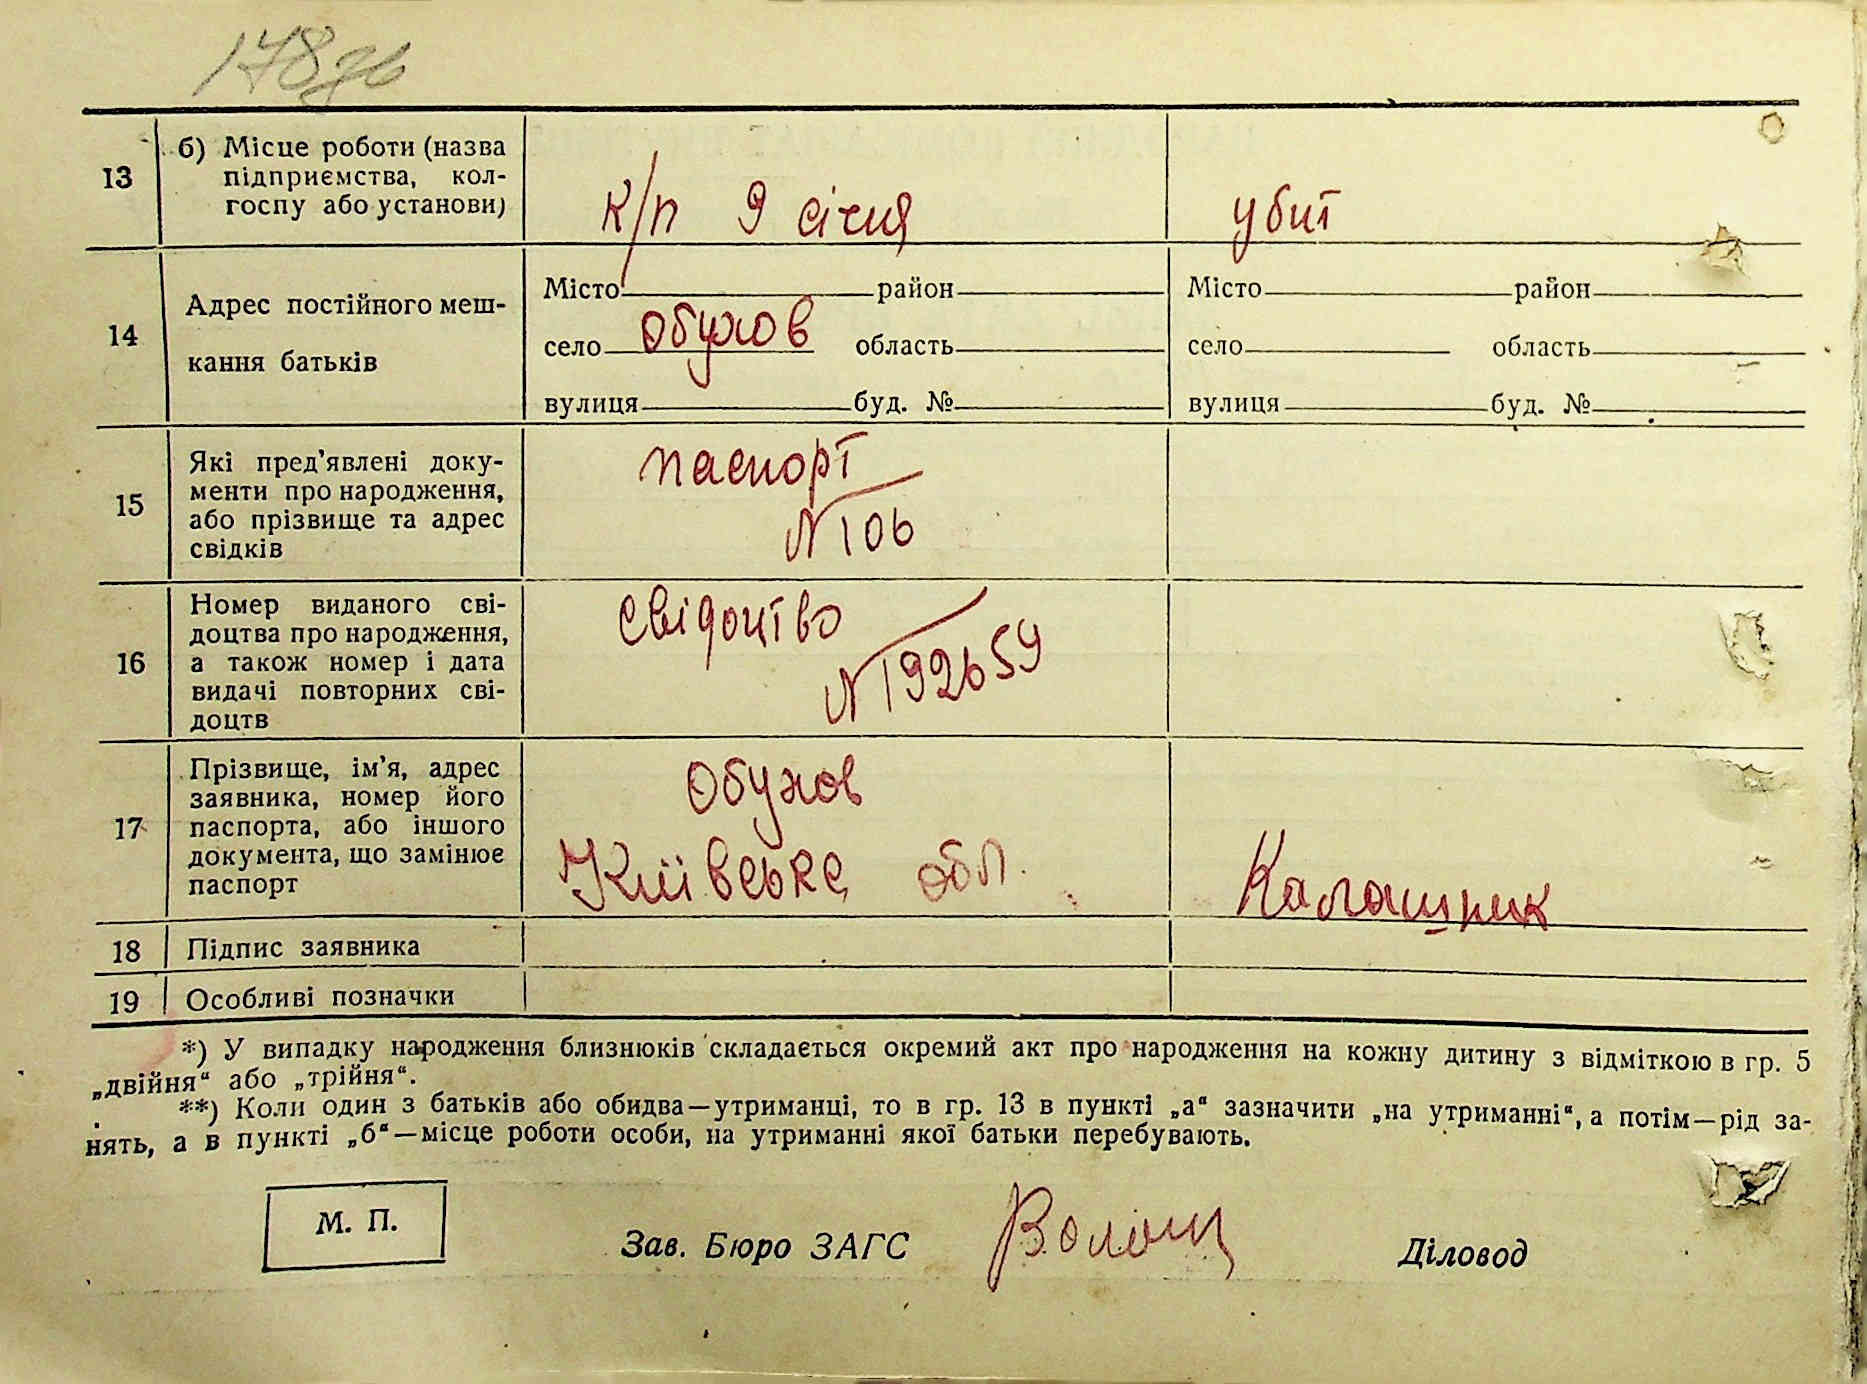 178зв
13
б) Місце роботи (назва
підприємства, кол-
госпу або установи)
к/п 9 січня
убит
14
Адрес постійного меш-
кання батьків
Місто район
село Обухов область
вулиця буд. №
Місто район
село область
вулиця буд. №
15
Які пред'явлені доку-
менти про народження,
або прізвище та адрес
свідків
паспорт
№ 106
16
Номер виданого сві-
доцтва про народження,
а також номер і дата
видачі повторних сві-
доцтв
свідоцтво
№ 192659
17
Прізвище, ім'я, адрес
заявника, номер його
паспорта, або іншого
документа, що замінює
паспорт
Обухов
Київське обл.
Калашник
18
Підпис заявника
19
Особливі позначки
*) У випадку народження близнюків складається окремий акт про народження на кожну дитину з відміткою в гр. 5
„двійня“ або „трійня“.
**) Коли один з батьків або обидва—утриманці, то в гр. 13 в пункті „а“ зазначити „на утриманні“, а потім—рід за-
нять, а в пункті „б“—місце роботи особи, на утриманні якої батьки перебувають.
М. П.
Зав. Бюро ЗАГС
Діловод